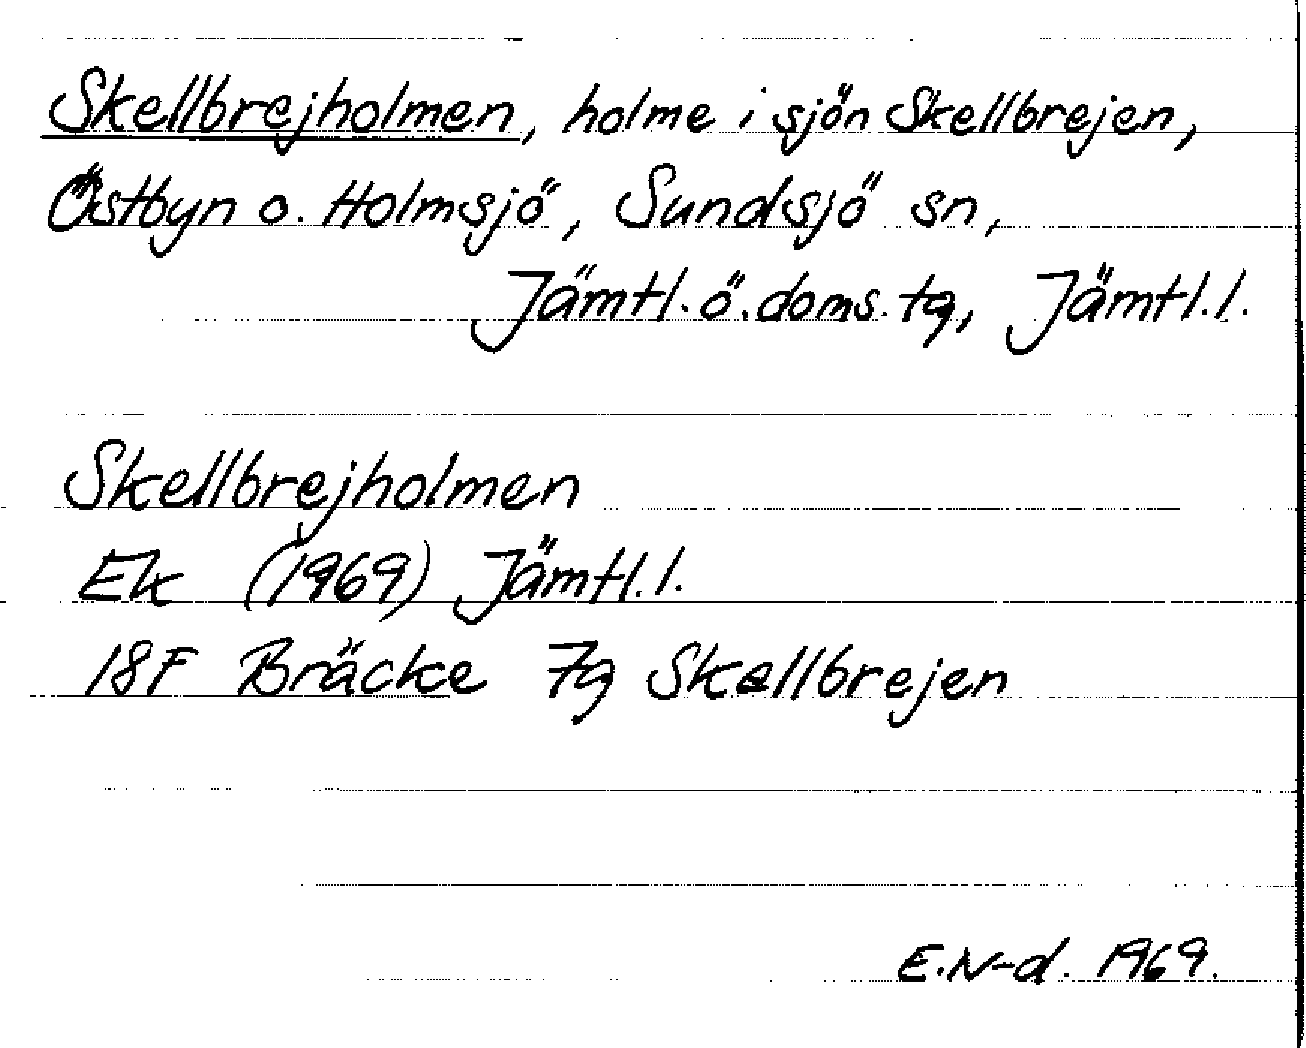 Skellbrejholmen, holme i sjön Skellbrejen,
Östbyn o. Holmsjö, Sundsjö sn,
Jämtl. ö. doms. tg, Jämtl. l.
Skellbrejholmen
Ek (1969) Jämtl. l.
18F Bräcke 7g Skellbrejen
E.N-d. 1969.